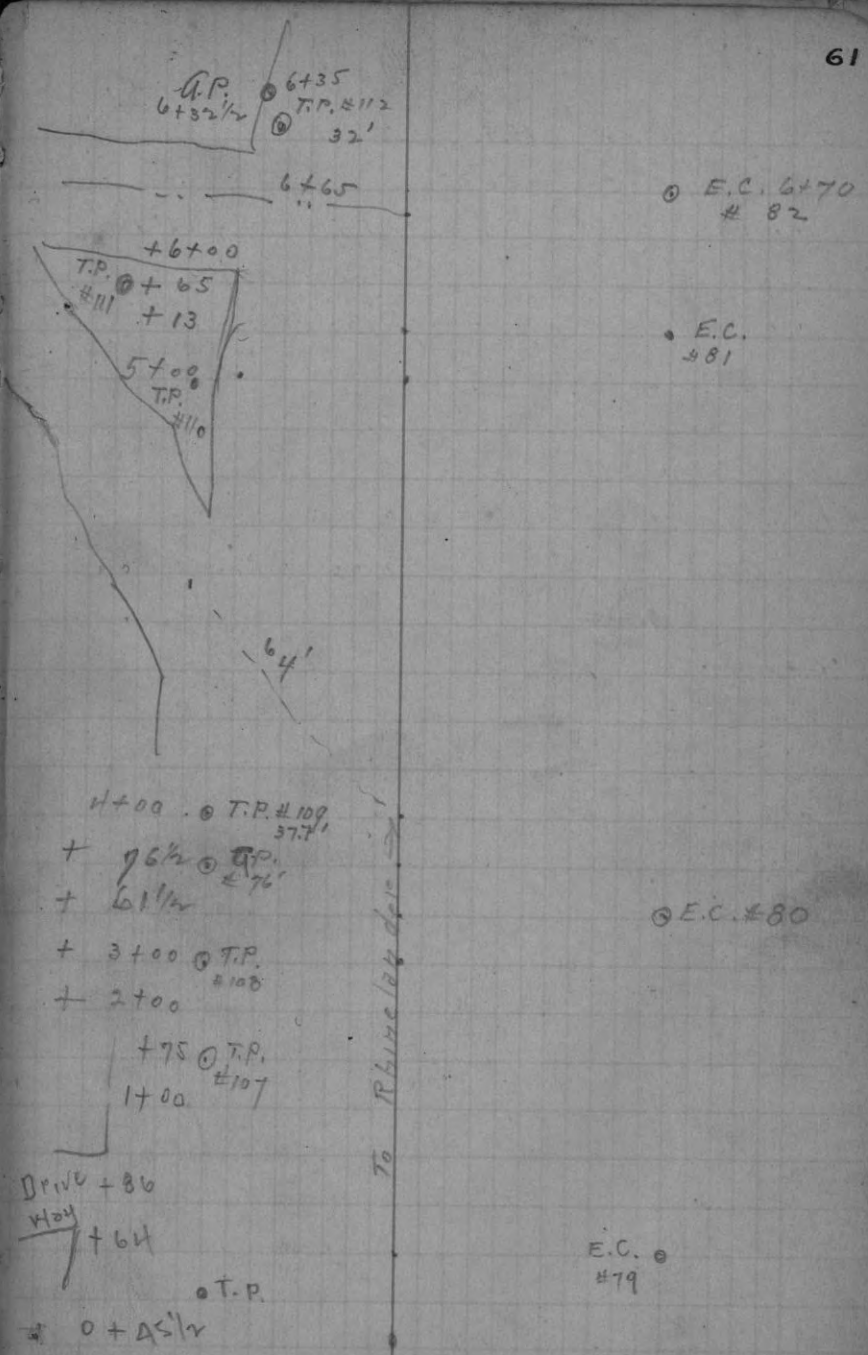 61
G.P.
6+32½
6+35
T.P. #112
32'
6+65
E.C. 6+70
# 82
+6+00
T.P.
#111
+ 65
+ 13
E.C.
#81
5+00
T.P.
#110
64'
4+00 T.P. #109
37.7'
+ 76½ G.P.
# 76'
+ 61½
E.C. #80
+ 3+00 T.P.
#108
+ 2+00
+75 T.P.
#107
1+00
To Rhinelander
Drive + 86
Way
+ 64
E.C.
#79
T.P.
0 + 45½